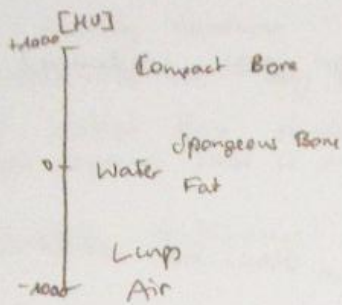 [HU]
+1000 Compact Bone
Spongeous Bone
0 Water
Fat
Lungs
-1000 Air